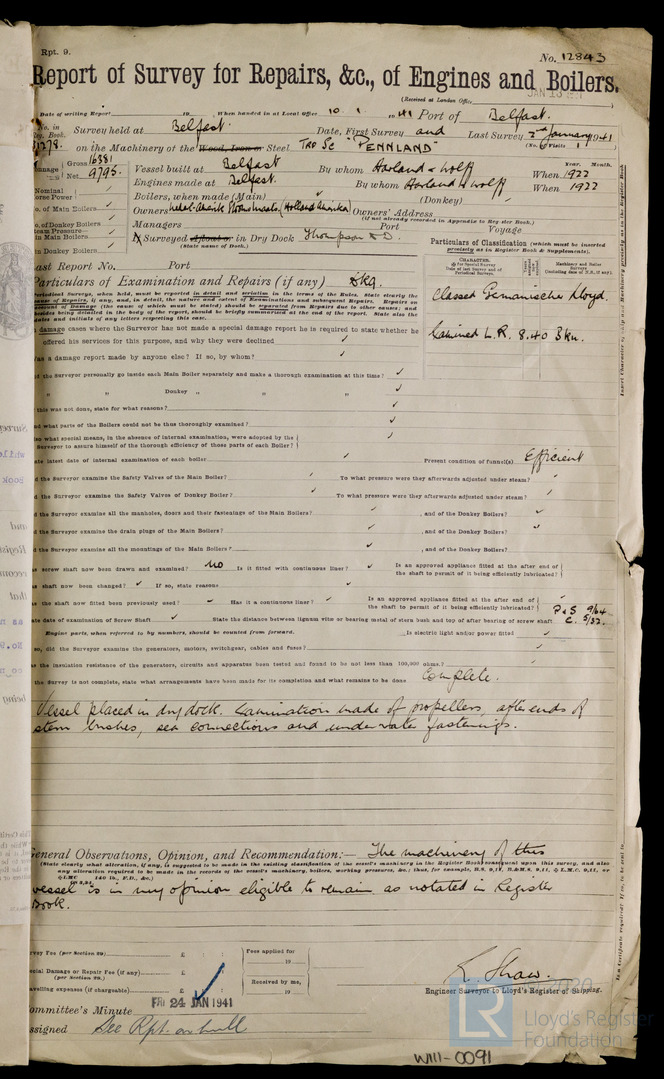 Rpt. 9.
No. 12843
Report of Survey for Repairs, &c., of Engines and Boilers.
(Received at London Office
Date of writing Report 19 , When handed in at Local Office 10. 1. 1941 Port of Belfast.
No. in Survey held at Belfast. Date, First Survey and Last Survey 2nd January 1941
Reg. Book. (No. of Visits 1)
on the Machinery of the Wood, Iron or Steel Trp Sc "PENNLAND"
Gross 16381
Net 9795 Vessel built at Belfast By whom Harland & Wolff When 1922
Year. Month.
Engines made at Belfast. By whom Harland & Wolff When 1922
Nominal Horse Power
Boilers, when made (Main) (Donkey)
No. of Main Boilers
Owners (Holland America) Owners' Address
(if not already recorded in Appendix to Register Book.)
No. of Donkey Boilers
Managers Port Voyage
Steam Pressure
in Main Boilers
in Donkey Boilers
Surveyed Afloat or in Dry Dock Thompson D.D.
(State name of Dock.)
Particulars of Classification (which must be inserted precisely as in Register Book & Supplements).
Last Report No. Port
Particulars of Examination and Repairs (if any) Dkg
Classed Germanischer Lloyd.
Examined L.R. 8.40 Bkn.
damage cases where the Surveyor has not made a special damage report he is required to state whether he
offered his services for this purpose, and why they were declined
Was a damage report made by anyone else? If so, by whom?
Did the Surveyor personally go inside each Main Boiler separately and make a thorough examination at this time?
" " Donkey " " "
If this was not done, state for what reasons?
And what parts of the Boilers could not be thus thoroughly examined?
Also what special means, in the absence of internal examination, were adopted by the
Surveyor to assure himself of the thorough efficiency of those parts of each Boiler?
State latest date of internal examination of each boiler Present condition of funnel(s) Efficient
Did the Surveyor examine the Safety Valves of the Main Boiler? To what pressure were they afterwards adjusted under steam?
Did the Surveyor examine the Safety Valves of Donkey Boiler? To what pressure were they afterwards adjusted under steam?
Did the Surveyor examine all the manholes, doors and their fastenings of the Main Boilers? , and of the Donkey Boilers?
Did the Surveyor examine the drain plugs of the Main Boilers? , and of the Donkey Boilers?
Did the Surveyor examine all the mountings of the Main Boilers? , and of the Donkey Boilers?
Has screw shaft now been drawn and examined? No Is it fitted with continuous liner? Is an approved appliance fitted at the after end of
the shaft to permit of it being efficiently lubricated?
Has shaft now been changed? If so, state reasons
Has the shaft now fitted been previously used? Has it a continuous liner? Is an approved appliance fitted at the after end of
the shaft to permit of it being efficiently lubricated?
State date of examination of Screw Shaft State the distance between lignum vitæ or bearing metal of stern bush and top of after bearing of screw shaft P & S 9/64 C. 5/32.
Engine parts, when referred to by numbers, should be counted from forward. Is electric light and/or power fitted
If so, did the Surveyor examine the generators, motors, switchgear, cables and fuses?
Has the insulation resistance of the generators, circuits and apparatus been tested and found to be not less than 100,000 ohms?
If the Survey is not complete, state what arrangements have been made for its completion and what remains to be done Complete.
Vessel placed in dry dock. Examination made of propellers, after ends of
stern bushes, sea connections and underwater fastenings.
General Observations, Opinion, and Recommendation:— The machinery of this
(State clearly what alteration, if any, is suggested to be made in the existing classification of the vessel's machinery in the Register Book consequent upon this survey, and also
any alteration required to be made in the records of the vessel's machinery, boilers, working pressures, &c.; thus, for example, B.S. 9,11, B.&M.S. 9,11, L.M.C. 9,11, or
vessel is in my opinion eligible to remain as notated in Register
Book.
Survey Fee (per Section 29) £ : : Fees applied for
19
Special Damage or Repair Fee (if any) £ : :
(per Section 29.) Received by me,
Travelling expenses (if chargeable) £ : : 19
K. Shaw.
Engineer Surveyor to Lloyd's Register of Shipping.
Committee's Minute FRI 24 JAN 1941
Assigned See Rpt. on hull
© 2020
LR
Lloyd's Register
Foundation
W111-0091